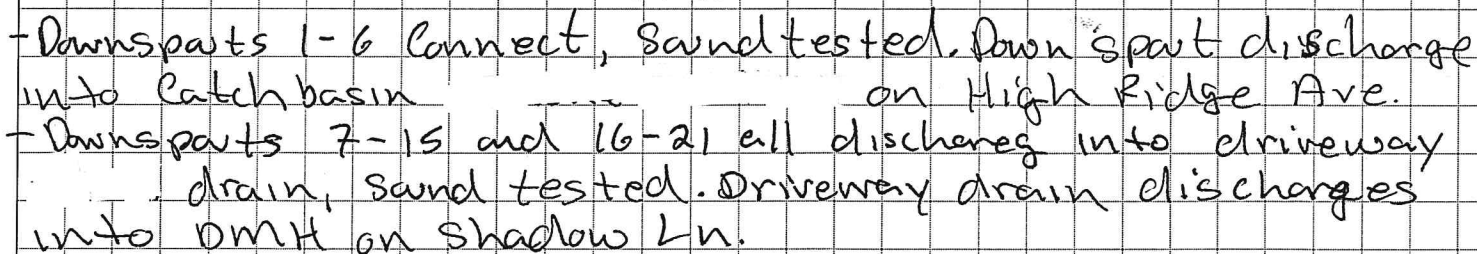 - Downspouts 1-6 Connect, Sound tested. Down spout discharge
into Catch basin on High Ridge Ave.
- Downspouts 7-15 and 16-21 all discharg into driveway
drain, sound tested. Driveway drain discharges
into DMH on Shadow Ln.